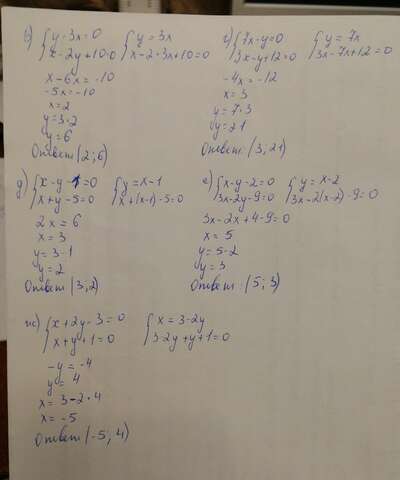 в) { y - 3x = 0 { y = 3x
x - 2y + 10 = 0 x - 2·3x + 10 = 0
x - 6x = -10
-5x = -10
x = 2
y = 3·2
y = 6
Ответ (2; 6)
г) { 7x - y = 0 { y = 7x
3x - y + 12 = 0 3x - 7x + 12 = 0
-4x = -12
x = 3
y = 7·3
y = 21
Ответ: (3; 21)
д) { x - y - 1 = 0 { y = x - 1
x + y - 5 = 0 x + (x - 1) - 5 = 0
2x = 6
x = 3
y = 3 - 1
y = 2
Ответ (3; 2)
е) { x - y - 2 = 0 { y = x - 2
3x - 2y - 9 = 0 3x - 2(x - 2) - 9 = 0
3x - 2x + 4 - 9 = 0
x = 5
y = 5 - 2
y = 3
Ответ: (5; 3)
ж) { x + 2y - 3 = 0 { x = 3 - 2y
x + y + 1 = 0 3 - 2y + y + 1 = 0
-y = -4
y = 4
x = 3 - 2·4
x = -5
Ответ (-5; 4)